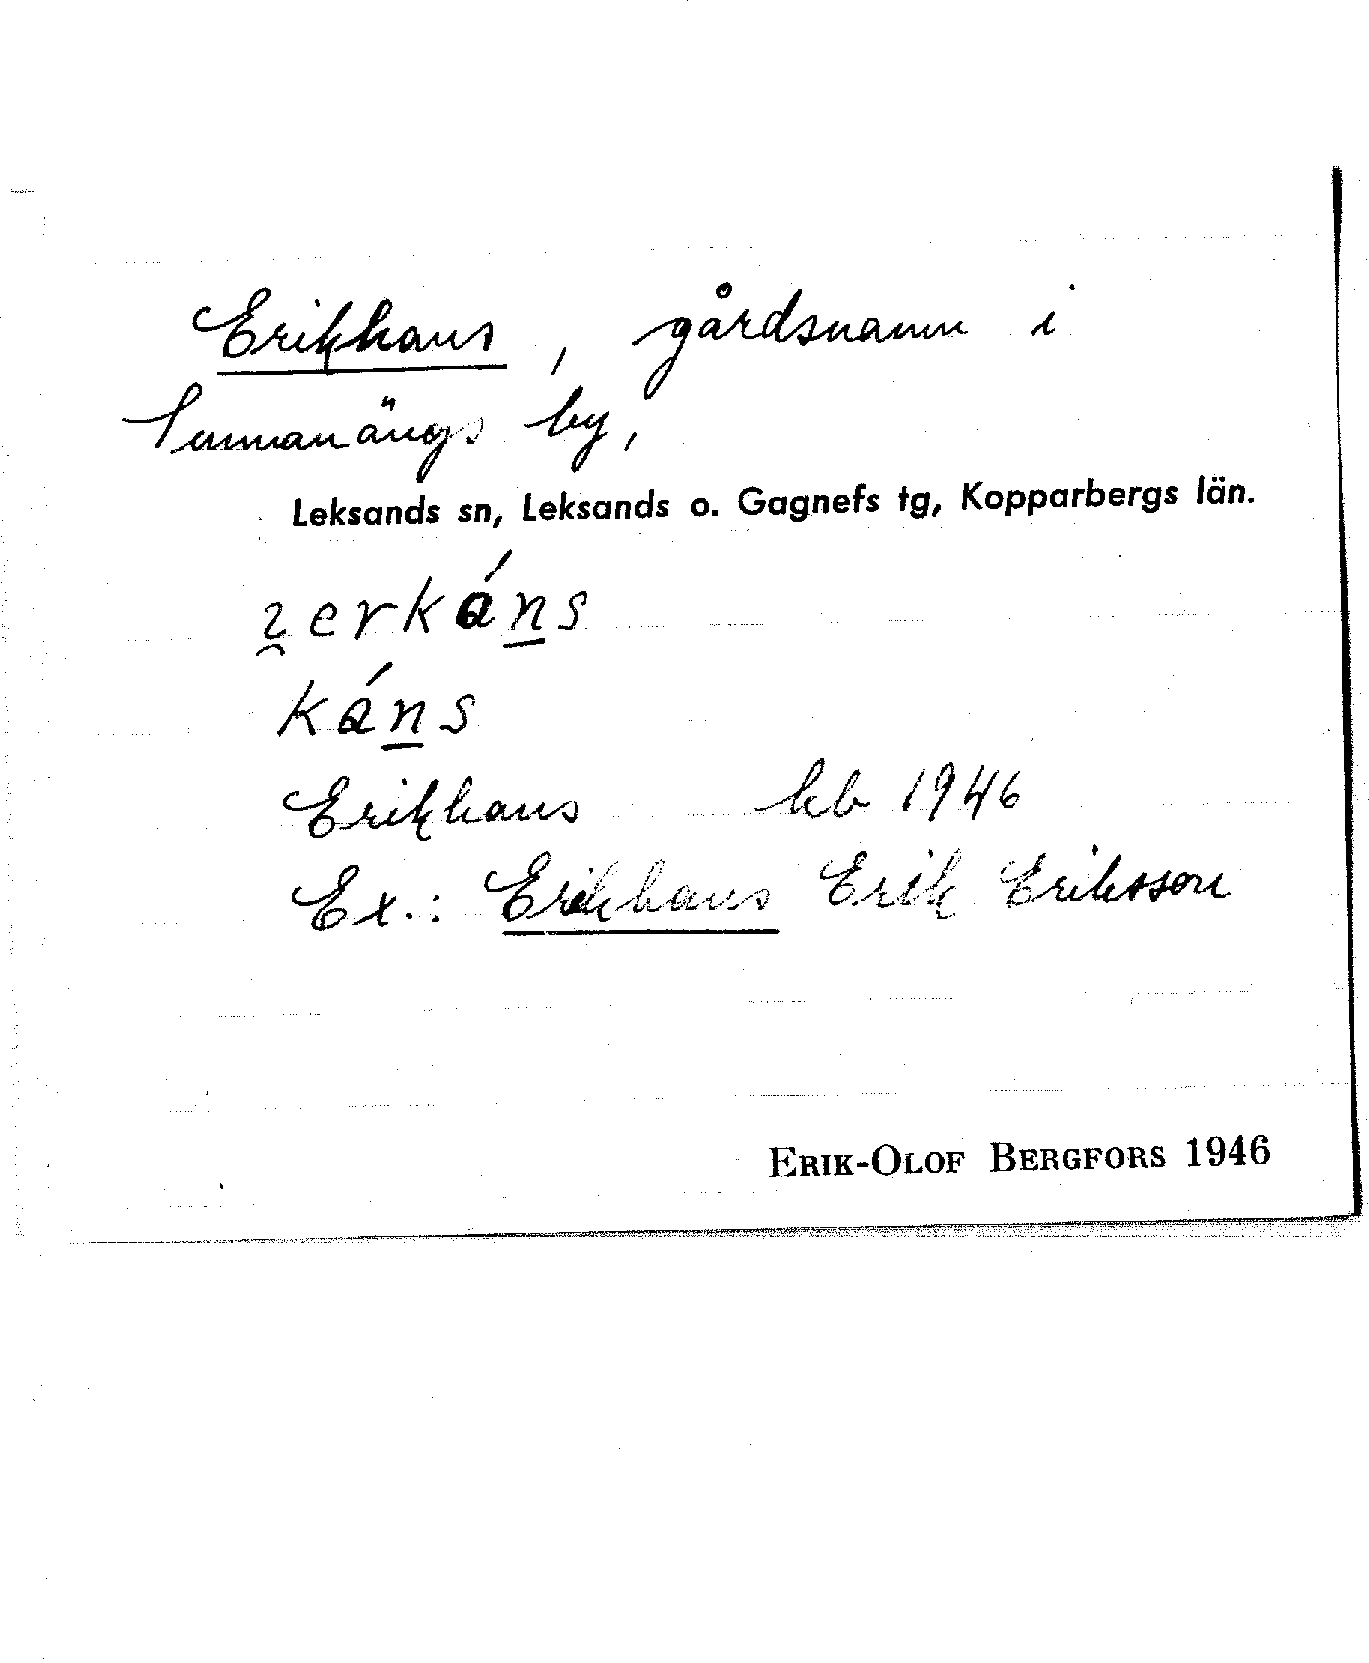 Erikhans, gårdsnamn i
Sunnanängs by,
Leksands sn, Leksands o. Gagnefs tg, Kopparbergs län.
káns
Erikhans kb 1946
Ex.: Erikhans Erik Eriksson
ERIK-OLOF BERGFORS 1946